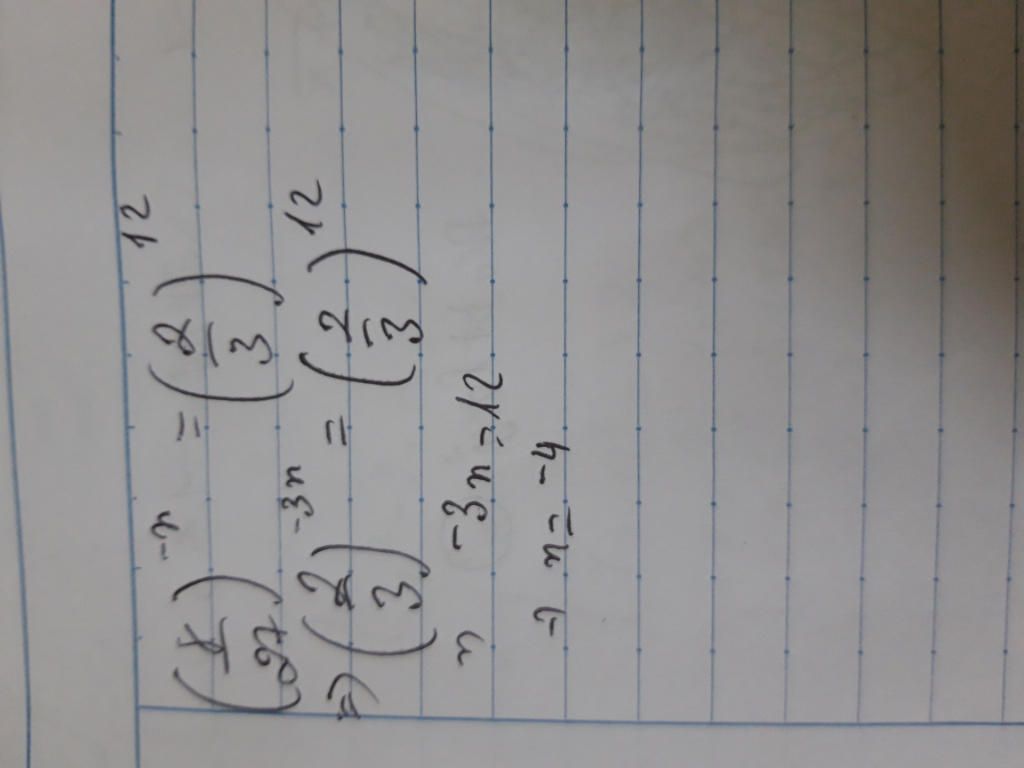 (8/27)^-n = (2/3)^12
=> (2/3)^-3n = (2/3)^12
=> -3n = 12
=> n = -4